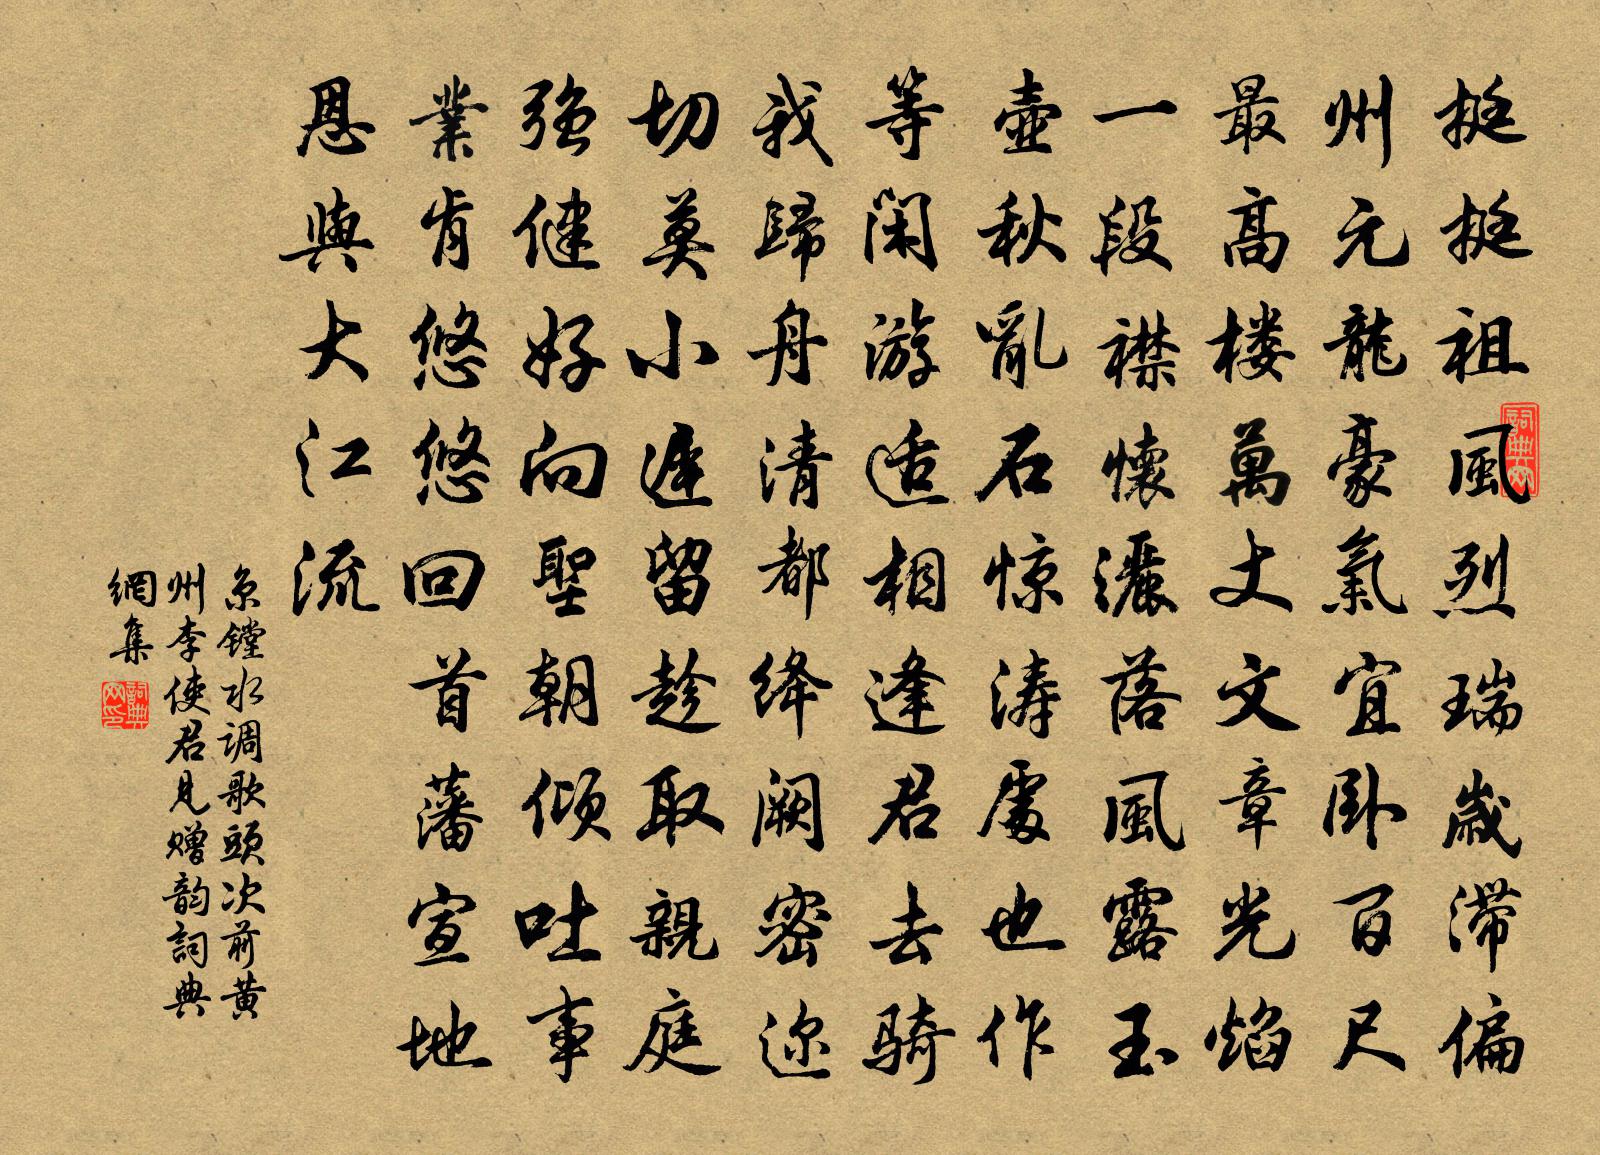 挺挺祖風烈瑞歲滞偏
州元龍豪氣宜卧百尺
最高楼萬丈文章光焰
一段襟懷灑落風露玉
壺秋亂石惊涛處也作
等閑游适相逢君去骑
我歸舟清都絳阙密迩
切莫小遲留趁取親庭
強健好向聖朝倾吐事
業肯悠悠回首藩宣地
恩與大江流
京鏜水调歌頭次前黄
州李使君見赠韵詞典
網集
詞典网
詞典网印